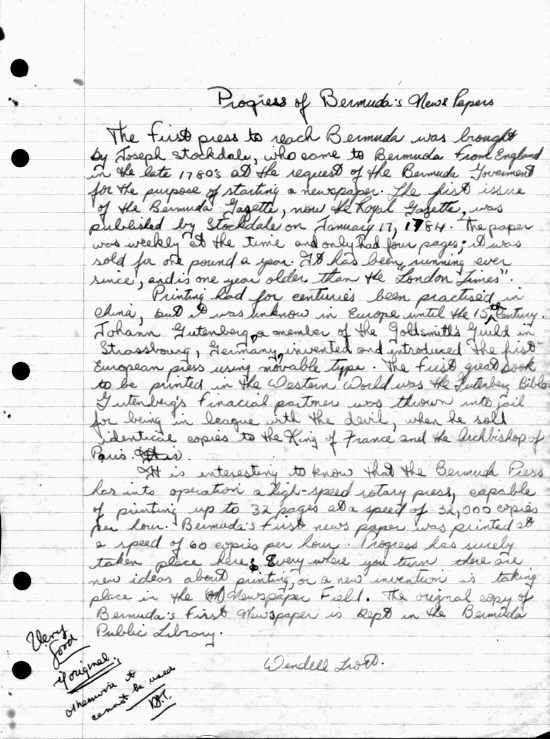 Progress of Bermuda's News Papers
The First press to reach Bermuda was brought
by Joseph Stockdale, who came to Bermuda From England
in the late 1780s at the request of the Bermuda Goverment
for the purpose of starting a newspaper. The first issue
of the Bermuda Gazette, now the Royal Gazette, was
published by Stockdale on January 17, 1784. The paper
was weekly at the time and only had four pages; it was
sold for one pound a year. It has been running ever
since, and is one year older than the "London Times".
Printing had for centuries been practised in
China, but it was unknow in Europe until the 15th Century.
Johann Gutenberg, a member of the Goldsmith's Guild in
Strassbourg, Germany, invented and introduced the first
European press using movable type. The First great book
to be printed in the Western World was the Gutenberg Bible.
Gutenberg's Finacial partner was thrown into jail
for being in league with the devil, when he sold
identical copies to the King of France and the Archbishop of
Paris.
It is interesting to know that the Bermuda Press
has into operation a high-speed rotary press, capable
of printing up to 32 pages at a speed of 32,000 copies
per hour. Bermuda's First news paper was printed at
a speed of 60 copies per hour. Progress has surely
taken place here; Every where you turn there are
new ideas about printing, or a new invention is taking
place in the Newspaper Field. The orignal copy of
Bermuda's First Newspaper is Kept in the Bermuda
Public Library.
Wendell
Very
Good
if original.
otherwise it
cannot be used